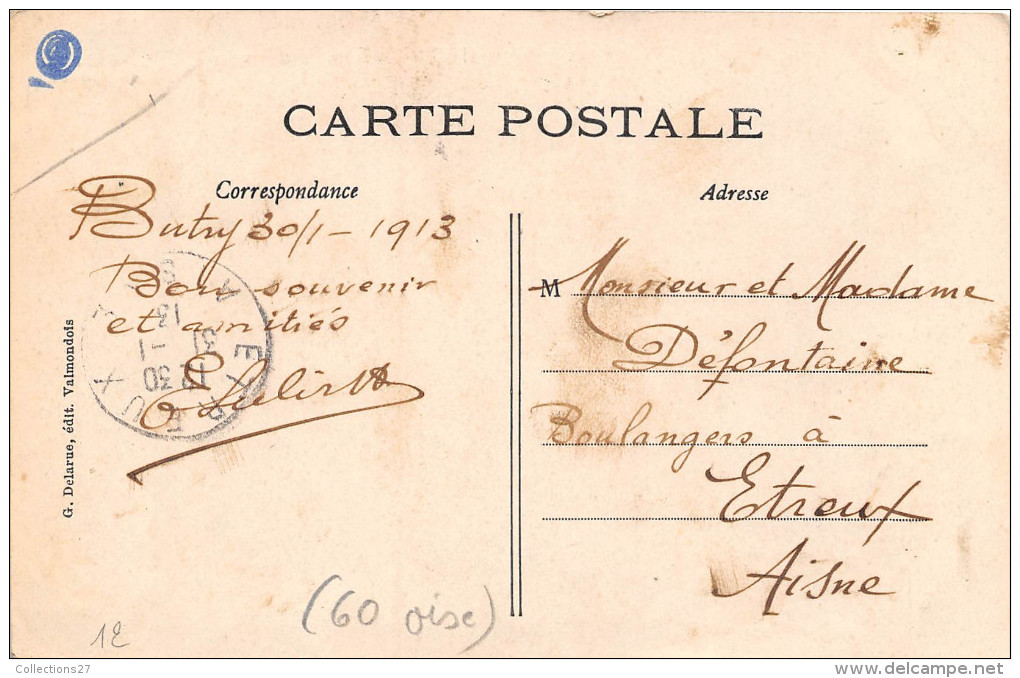 CARTE POSTALE
Correspondance
Adresse
Butry 30/1 - 1913
Bon souvenir
et amitiés
M Monsieur et Madame
Défontaine
Boulangers à
Etreux
Aisne
G. Delarue, édit. Valmondois
ETREUX
13
31 - 1
30
(60 oise)
12
Collections27
delcampe.net